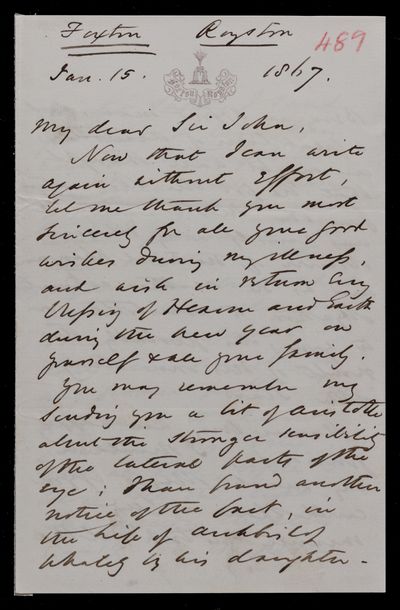 Foxton Royston
489
Jan. 15. 1867.
My dear Sir John,
Now that I can write
again without effort,
let me thank you most
sincerely for all your good
wishes during my illness,
and wish in return every
blessing of Heaven and Earth
during the new year on
yourself & all your family.
You may remember my
sending you a bit of Aristotle
about the stronger sensibility
of the lateral parts of the
eye; I have found another
notice of the fact, in
the Life of Archbp. of
Whately by his daughter -